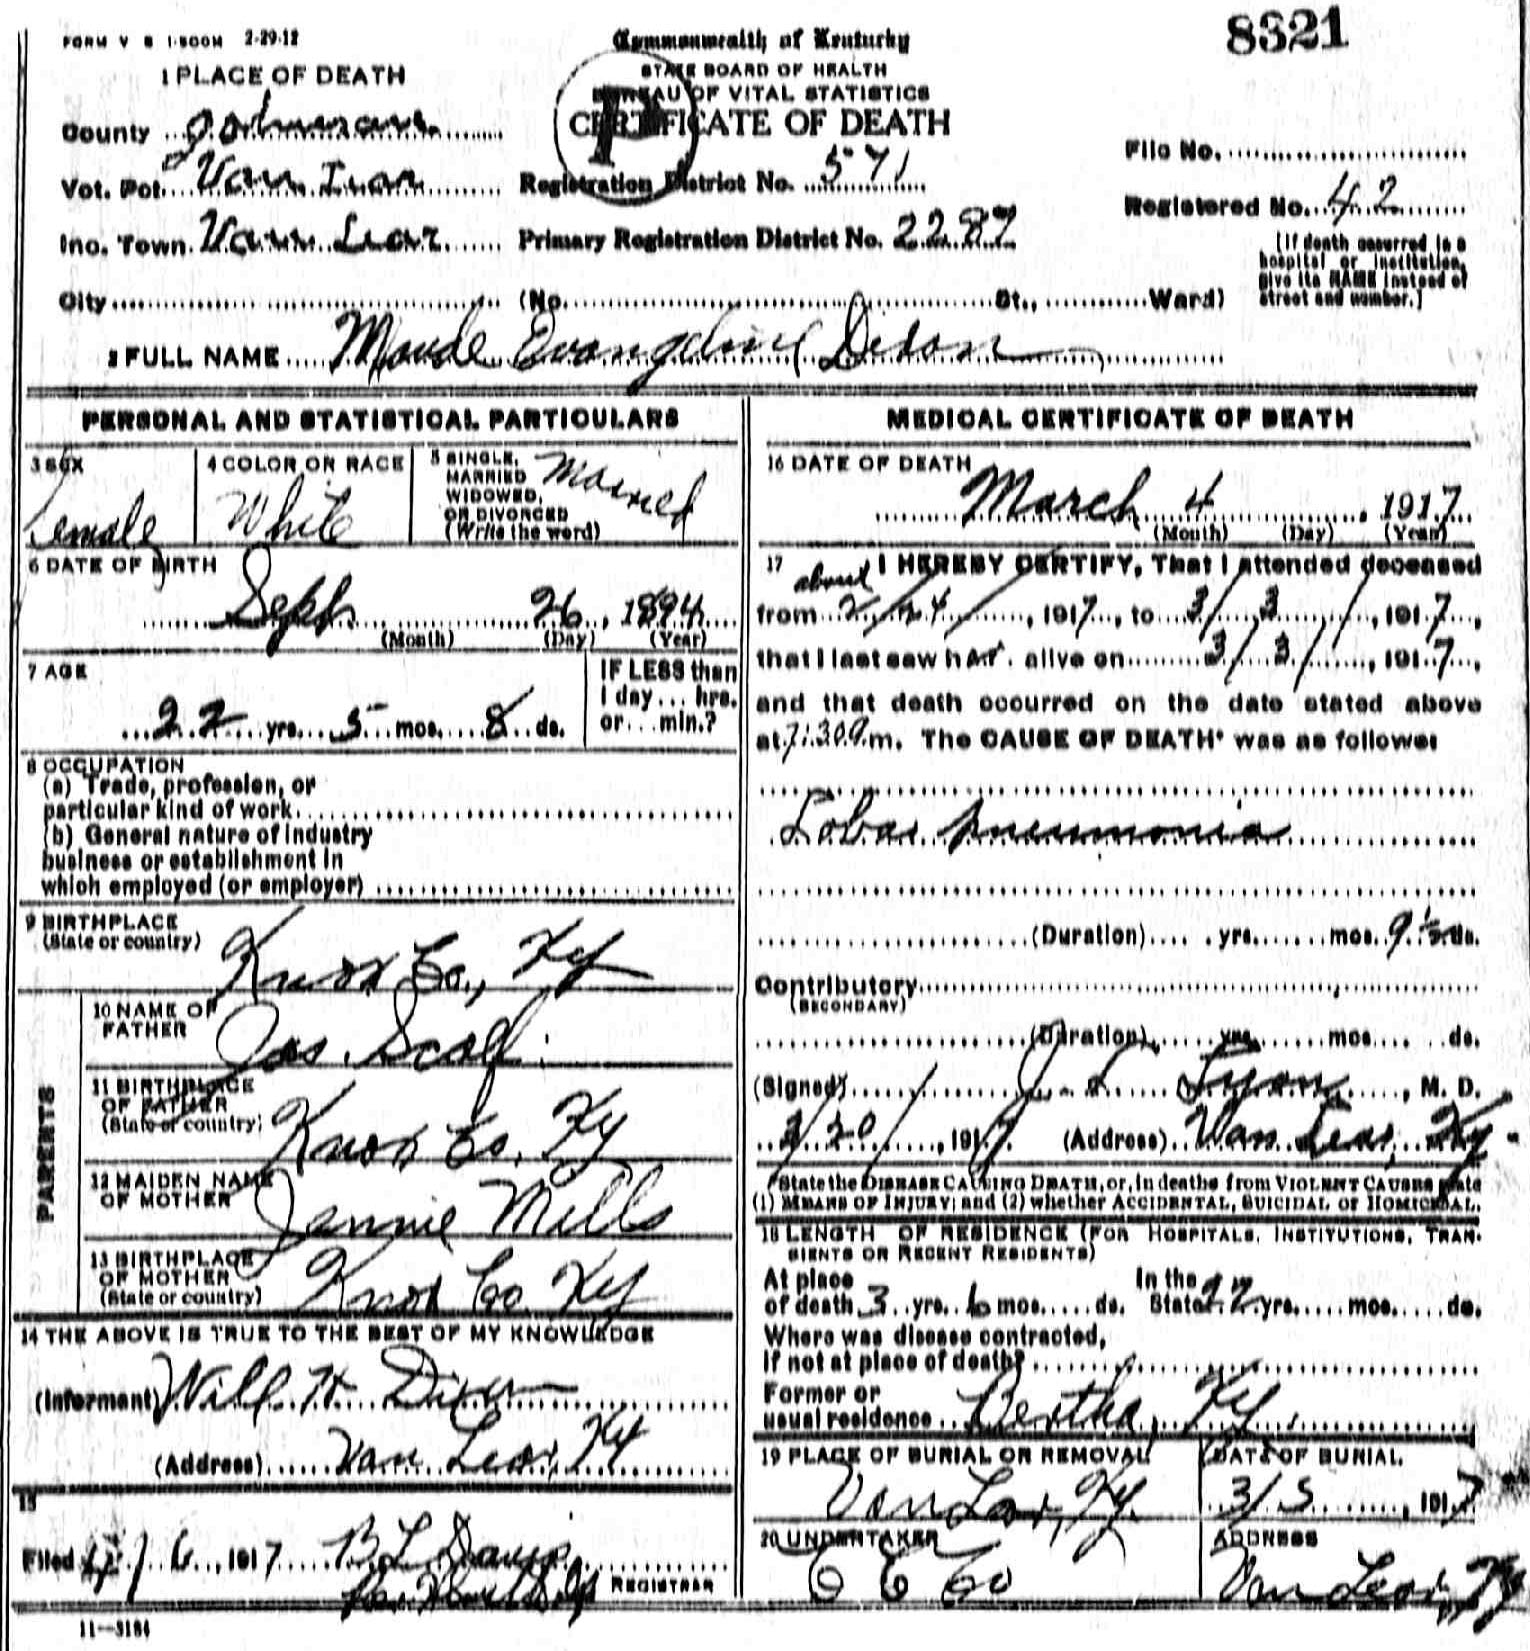 FORM V S 1-500M 2-29-12
8321
Commonwealth of Kentucky
STATE BOARD OF HEALTH
BUREAU OF VITAL STATISTICS
CERTIFICATE OF DEATH
1 PLACE OF DEATH
County Johnson
Vot. Pct. Van Lear Registration District No. 571
File No.
Registered No. 42
Inc. Town Van Lear Primary Registration District No. 2287
City (No. St., Ward)
[If death occurred in a hospital or institution, give its NAME instead of street and number.]
2 FULL NAME Maude Evangeline Dixon
PERSONAL AND STATISTICAL PARTICULARS
3 SEX Female
4 COLOR OR RACE White
5 SINGLE, MARRIED WIDOWED, OR DIVORCED (Write the word) Married
6 DATE OF BIRTH
Sept. 26, 1894
(Month) (Day) (Year)
7 AGE
22 yrs. 5 mos. 8 ds.
IF LESS than 1 day... hrs. or... min.?
8 OCCUPATION
(a) Trade, profession, or
particular kind of work
(b) General nature of industry
business or establishment in
which employed (or employer)
9 BIRTHPLACE
(State or country) Knox Co., Ky
PARENTS
10 NAME OF FATHER Jas. Scalf
11 BIRTHPLACE OF FATHER (State or country) Knox Co. Ky
12 MAIDEN NAME OF MOTHER Jennie Mills
13 BIRTHPLACE OF MOTHER (State or country) Knox Co Ky
14 THE ABOVE IS TRUE TO THE BEST OF MY KNOWLEDGE
(Informant) Will H. Dixon
(Address) Van Lear, Ky
15
Filed 6, 1917 B L Davis
REGISTRAR
11--3184
MEDICAL CERTIFICATE OF DEATH
16 DATE OF DEATH
March 4, 1917
(Month) (Day) (Year)
17 I HEREBY CERTIFY, That I attended deceased
about
from 2/24/, 1917, to 3/3/, 1917,
that I last saw her alive on 3/3/, 1917,
and that death occurred on the date stated above
at 7:30 m. The CAUSE OF DEATH* was as follows:
Lobar pneumonia
(Duration) yrs. mos. 9 ½ ds.
Contributory
(SECONDARY)
(Duration) yrs. mos. ds.
(Signed) J L Lyon, M. D.
/20/, 1917 (Address) Van Lear, Ky.
*State the DISEASE CAUSING DEATH, or, in deaths from VIOLENT CAUSES state
(1) MEANS OF INJURY; and (2) whether ACCIDENTAL, SUICIDAL or HOMICIDAL.
18 LENGTH OF RESIDENCE (FOR HOSPITALS, INSTITUTIONS, TRAN-
SIENTS OR RECENT RESIDENTS)
At place In the
of death 3 yrs. 6 mos. ds. State 22 yrs. mos. ds.
Where was disease contracted,
if not at place of death?
Former or
usual residence Bertha, Ky.
19 PLACE OF BURIAL OR REMOVAL
Van Lear, Ky.
DATE OF BURIAL
3/5, 1917
20 UNDERTAKER
C C Co
ADDRESS
Van Lear, Ky